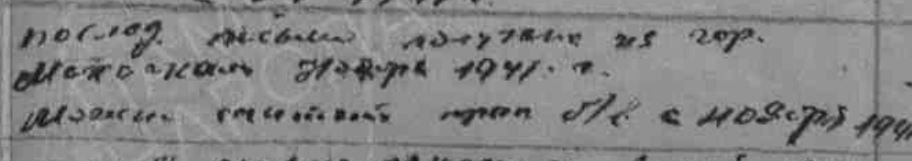 послед. письмо получено из гор.
Ноябрь 1941 г.
Можно считать проп б/в с ноября 194